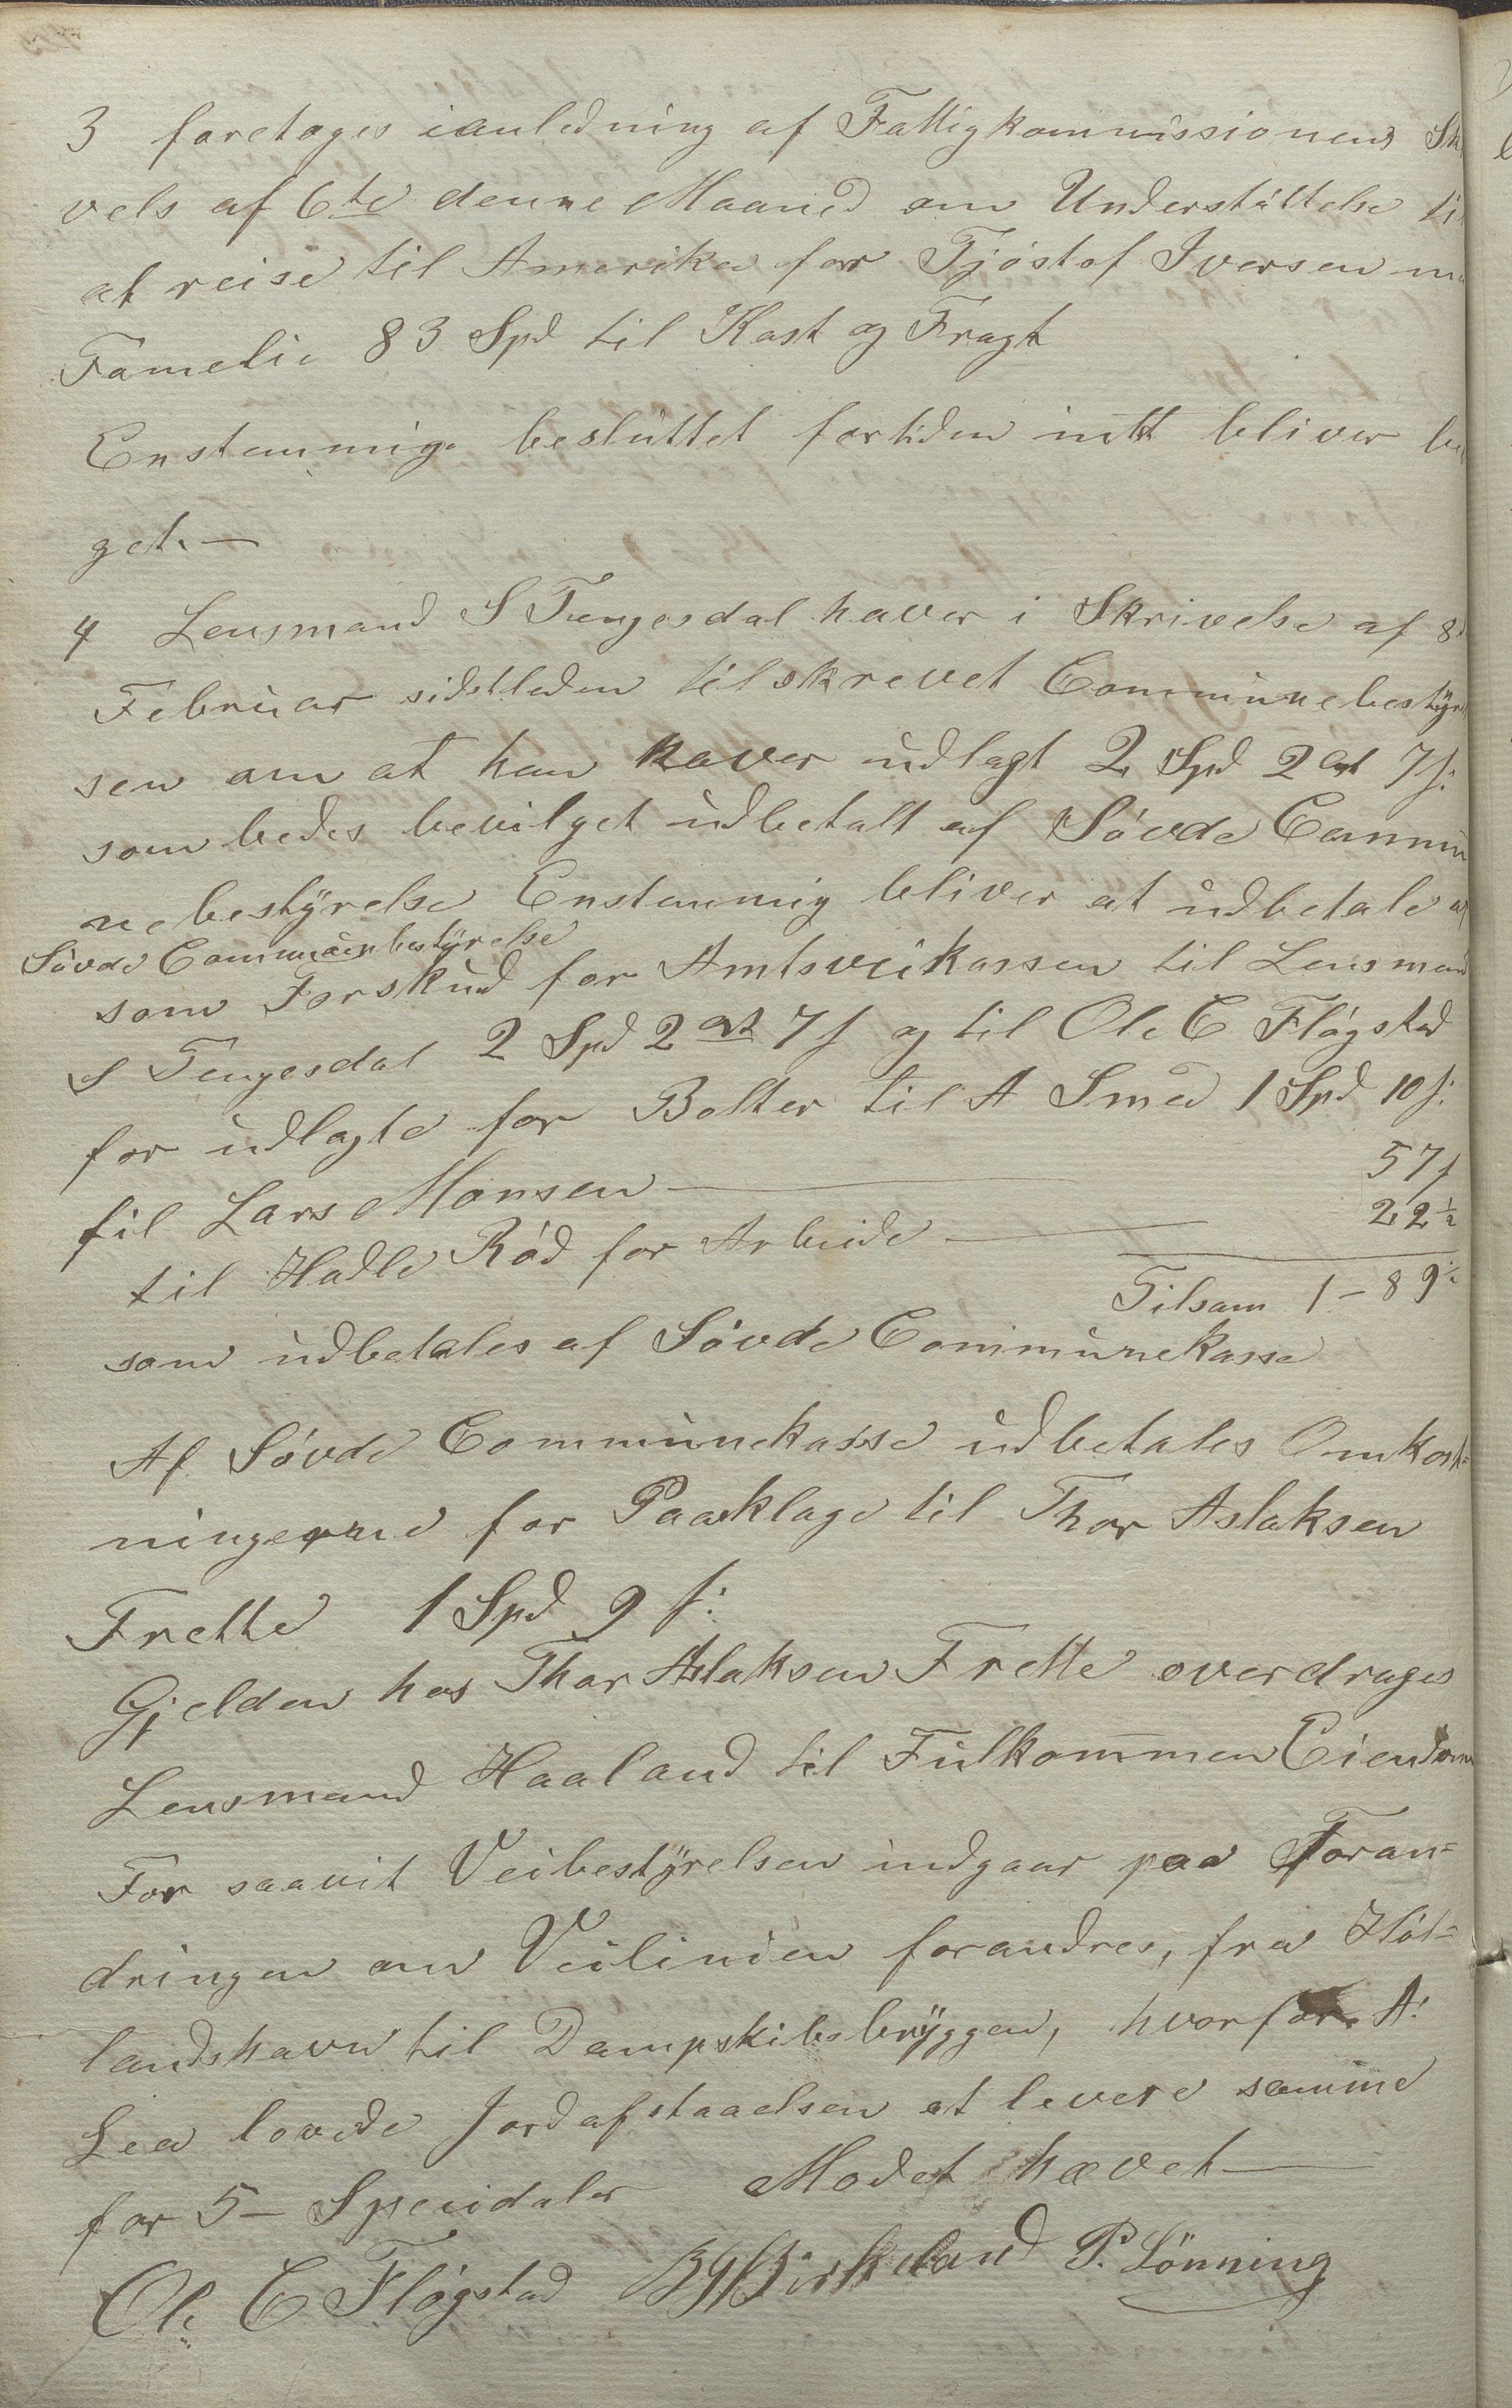 3 foretoges ianledning af Fattigkommissionens Sk
vels af 6te denne Maaned om Understøttelse ti
at reise til Amerika for Tjøstof Iversen m
Famelie 83 Spd til Kost og Fragt
Enstemmig besluttet fortiden intt bliver be
get. —
4 Lensmand S Tengesdal haver i Skrivelse af 8
Februar sidstleden tilskrevet Communebestyr
sen om at han haver udlagt 2 Spd 2 ort 7 s:
som bedes bevilget udbetalt af Søvde Commu
nebestyrelse Enstemmig bliver at udbetale af
Søvde Communbestyrelse
som Forskud for Amtsveikassen til Lensmand
S Tengesdal 2 Spd 2 ort 7 s og til Ole C Fløgstad
for udlagte for Bolter til A Smed 1 Spd 10 s:
til Lars Monsen — 57 s
til Hadle Rød for Arbeide — 22 ½
Tilsam 1 - 89 ½
som udbetales af Søvde Communekasse
Af Søvde Communekasse udbetales Omkost=
ningerne for Paaklage til Thor Aslaksen
Frette 1 Spd 9 s:
Gjelden hos Thor Aslaksen Frette overdrages
Lensmand Haaland til Fulkommen Eiendom
For saavit Veibestyrelsen indgaar paa Foran=
dringen om Veilinien forandres, fra Høl=
landshavn til Dampskibsbryggen, hvorfor A:
Lea lovede Jordafstaaelsen at levere samme
for 5 - Speidaler Modet hævet —
Ole C Fløgstad Birkeland P. Lönning